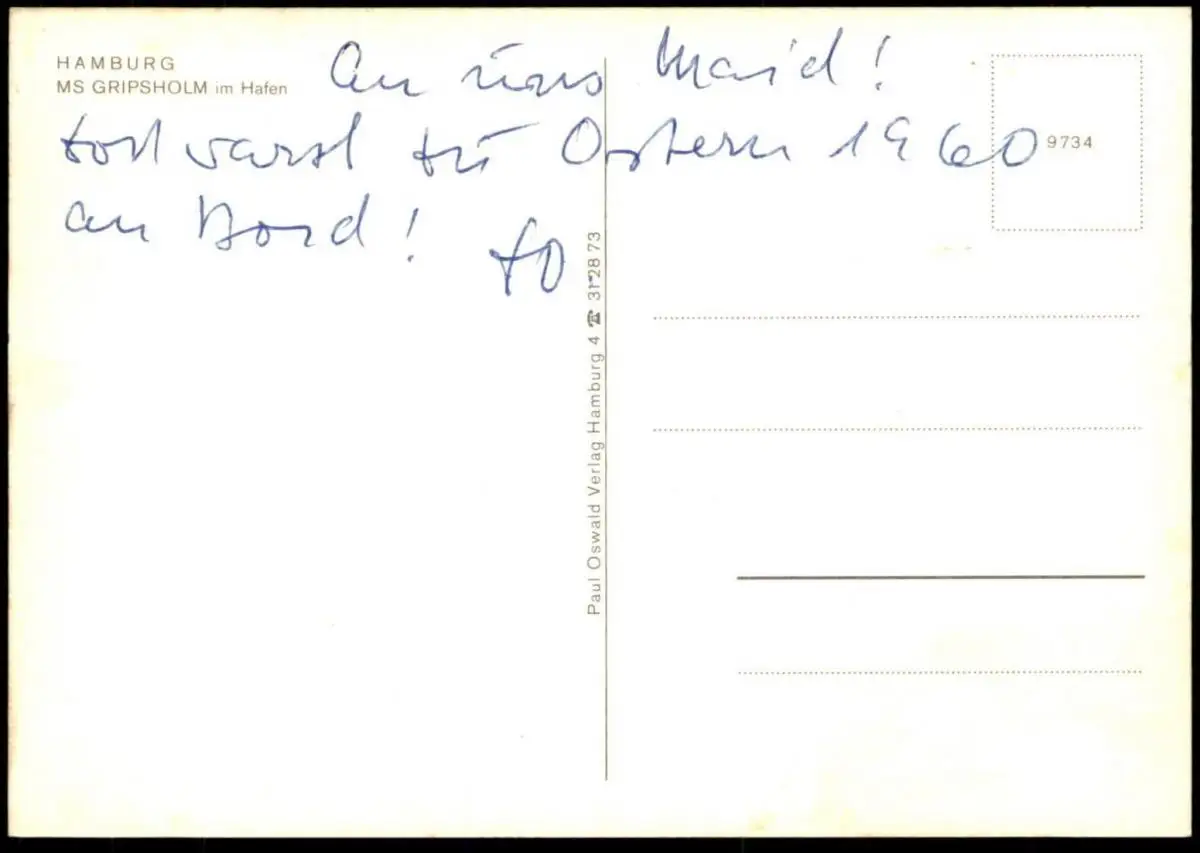 HAMBURG
MS GRIPSHOLM im Hafen
An uns Maid!
warst zu Ostern 1960
an Bord!
9734
Paul Oswald Verlag Hamburg 4 ☎ 31 28 73